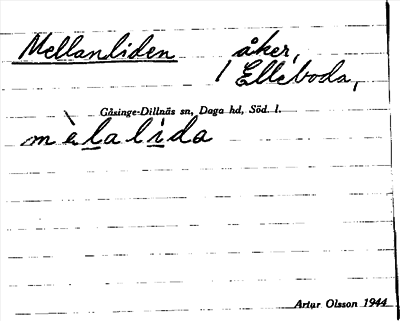 Mellanliden åker,
/ Elleboda,
Gåsinge-Dillnäs sn, Daga hd, Söd. l.
mèlalida
Artur Olsson 1944